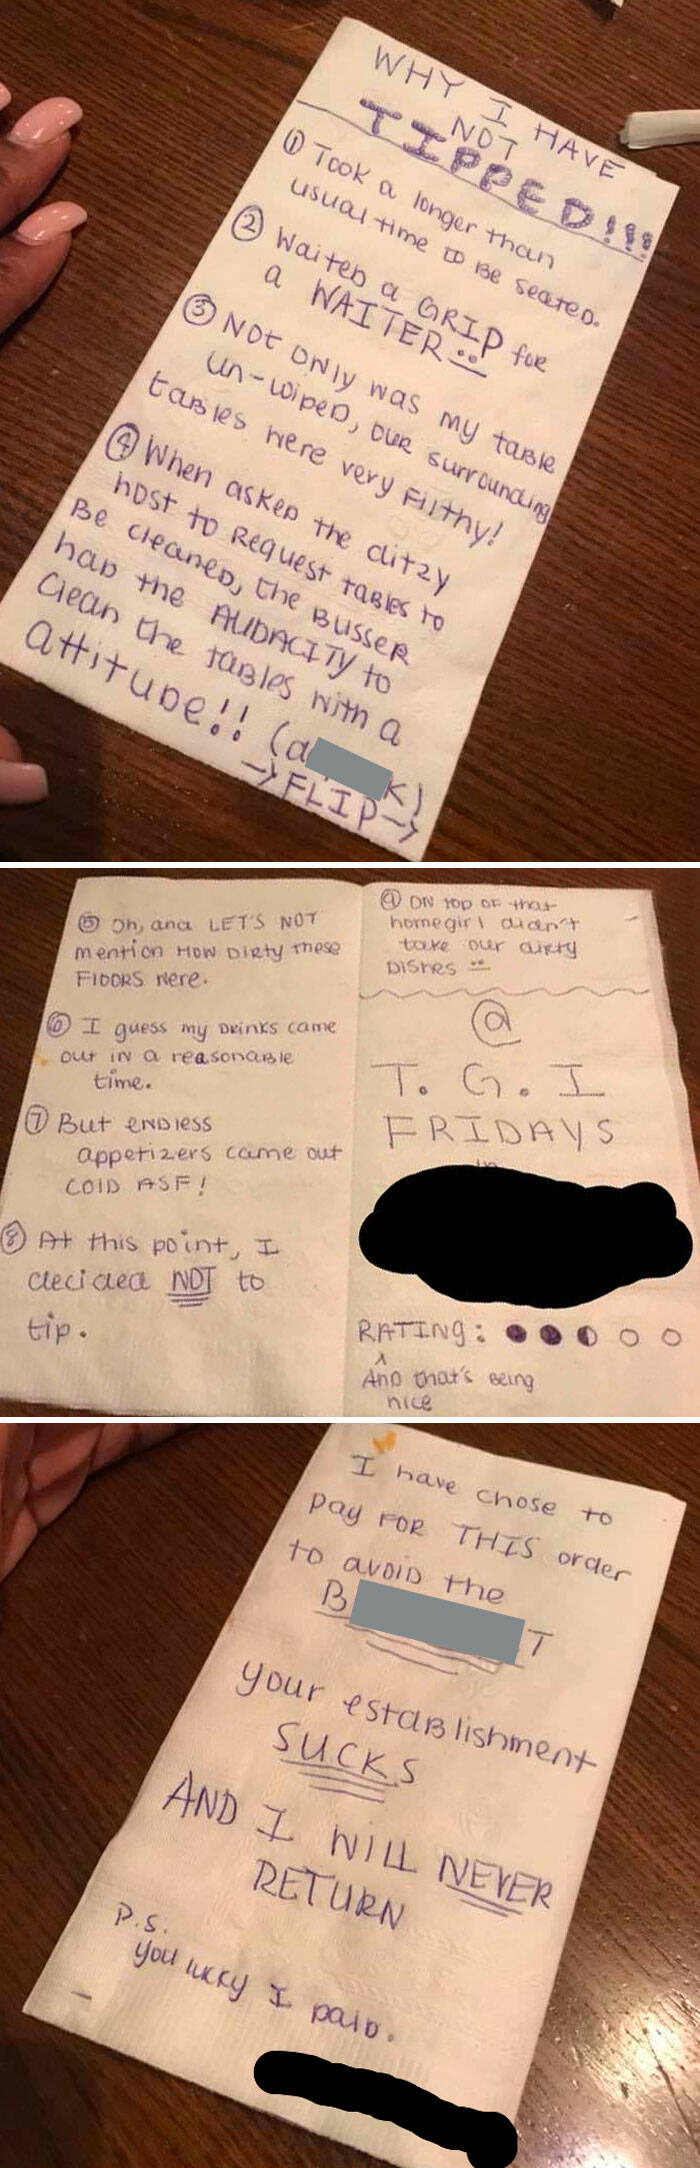 WHY I HAVE
NOT
TIPPED!!!
① Took a longer than
usual time to Be seated.
② Waited a GRIP for
a WAITER
③ Not only was my table
un-wiped, our surrounding
tables were very Filthy!
④ When asked the ditzy
host to Request tables to
Be cleaned, the Busser
had the AUDACITY to
clean the tables with a
attitude!!
→FLIP→
⑤ Oh, and LET'S NOT
mention HOW Dirty these
FlOORS were.
⑥ I guess my Drinks came
out in a reasonable
time.
⑦ But endless
appetizers came out
COlD ASF!
⑧ At this point, I
decided NOT to
tip.
⑨ ON top of that
homegirl didn't
take our dirty
Dishes
@
T. G. I
FRIDAYS
in
RATING:
And that's Being
nice
I have chose to
pay FOR THIS order
to avoid the
B T
your establishment
SUCKS
AND I WILL NEVER
RETURN
P.S.
you lucky I paid.